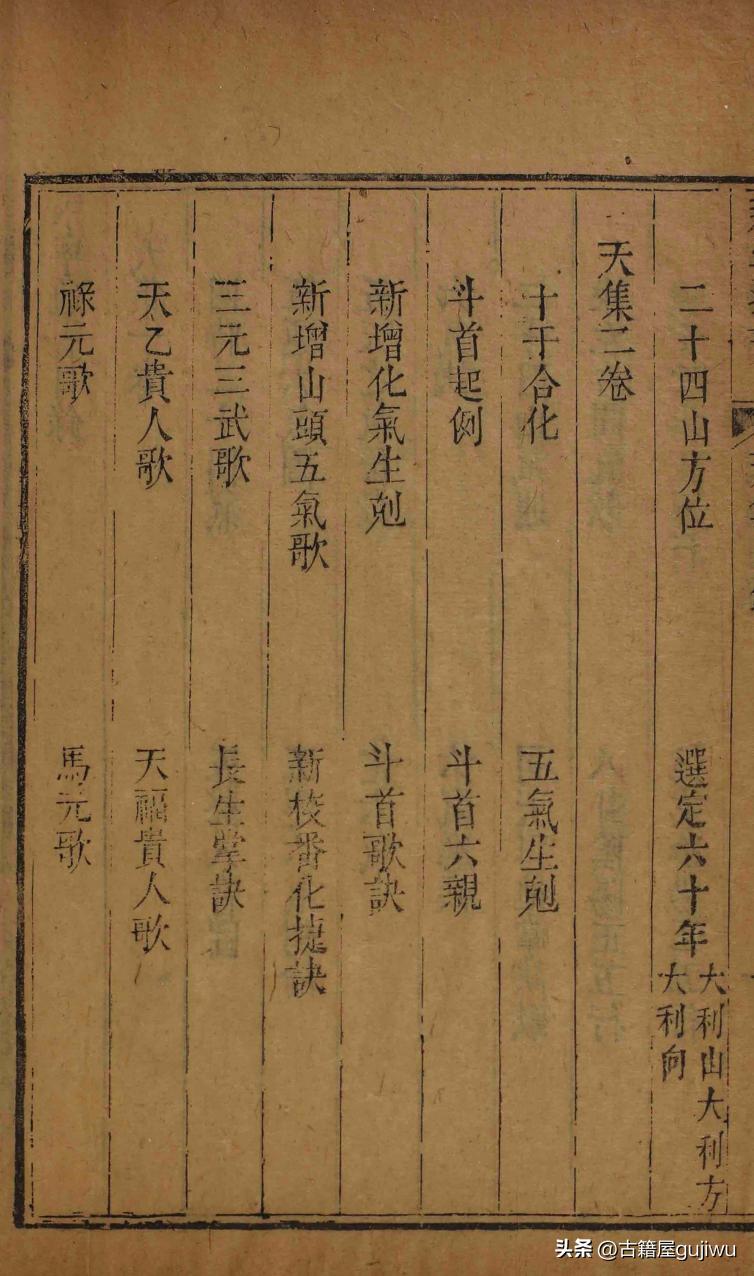 二十四山方位　選定六十年　大利山大利方大利向
天集二卷
十干合化　五氣生剋
斗首起例　斗首六親
新增化氣生剋　斗首歌訣
新增山頭五氣歌　新校番化捷訣
三元三武歌　長生掌訣
天乙貴人歌　天福貴人歌
祿元歌　馬元歌
头条 @古籍屋gujiwu